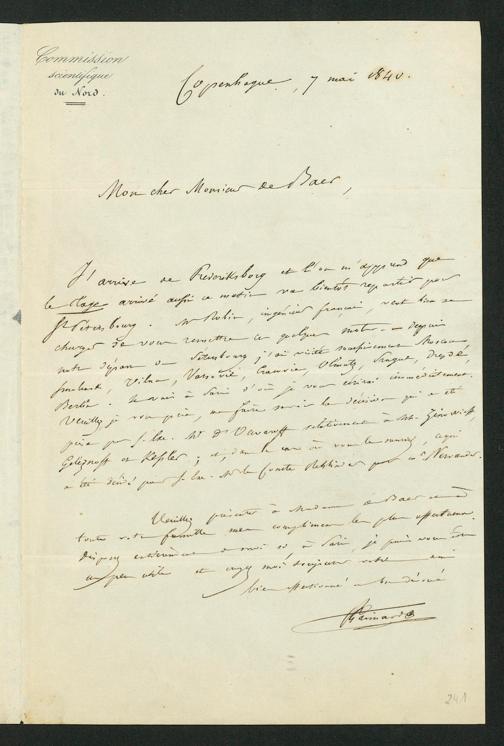 Commission
scientifique
du Nord.
Copenhague, 7 mai 1840.
Mon cher Monsieur de Baer,
J'arrive de Frederiksborg et l'on m'apprend que
le arrivé aussi ce matin va bientôt repartir pour
St Pétersbourg. Mr Robin, ingénieur français, veut bien se
charger de vous remettre ce quelque mots. depuis
notre départ de Pétersbourg j'ai visité Moscou,
Smolensk, Vilna, Varsovie, Cracovie, Olmutz, Prague, Dresde,
Berlin. à Paris d'où je vous écrirai immédiatement.
Veuillez je vous prie, me faire savoir la décision qui a été
prise par S. Exc. Mr d'Ouvaroff relativement à MM.
et Kessler;
a été décidé par S. Exc. Mr le Comte pour Mr Nervander.
Veuillez présenter à Madame de Baer et à
toute votre famille mes compliments les plus affectueux.
Disposez entièrement de moi si, à Paris, je puis vous être
un peu utile et croyez moi toujours votre ami
bien affectionné et bien dévoué
Gaimard
241